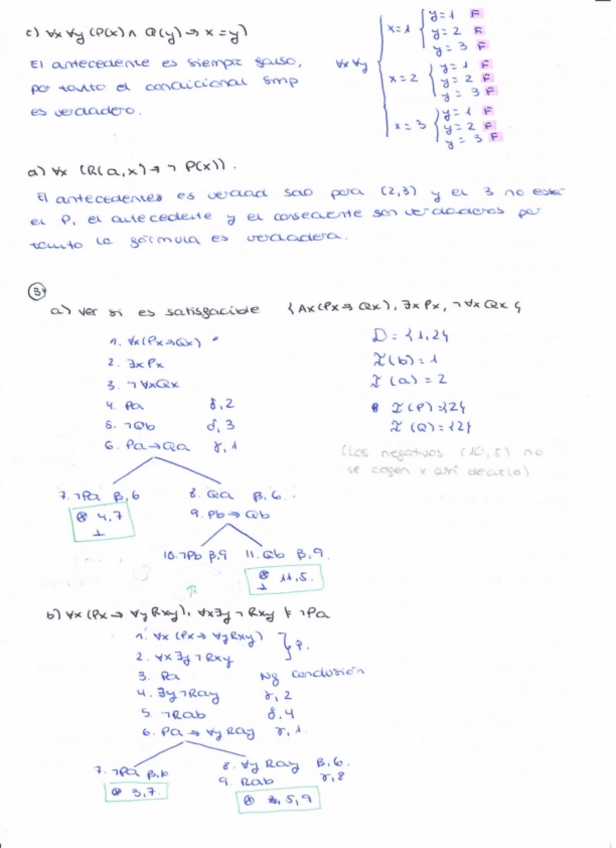 c) ∀x ∀y (P(x) ∧ Q(y) → x = y)
El antecedente es siempre falso,
por tanto el condicional smp
es verdadero.
∀x ∀y
x=1 { y=1 F
y=2 F
y=3 F
x=2 { y=1 F
y=2 F
y=3 F
x=3 { y=1 F
y=2 F
y=3 F
a) ∀x (R(a,x) → ¬ P(x)).
El antecedente es verdad solo para (2,3) y el 3 no está
el P, el antecedente y el consecuente son verdaderos por
tanto la fórmula es verdadera.
3º
a) ver si es satisfacible { Ax(Px → Qx), ∃xPx, ¬∀xQx }
1. ∀x(Px→Qx)
2. ∃xPx
3. ¬∀xQx
4. Pa δ, 2
5. ¬Qb δ, 3
6. Pa→Qa γ, 1
7. ¬Pa β, 6
⊗ 4,7
⊥
8. Qa β, 6.
9. Pb→Qb
10. ¬Pb β, 9 11. Qb β, 9.
⊗ 11,5.
⊥
D = {1,2}
I(b) = 1
I(a) = 2
I(P) = {2}
I(Q) = {2}
(Los negativos (10,5) no
se cogen x así decirlo)
b) ∀x (Px → ∀yRxy), ∀x∃y ¬Rxy ⊧ ¬Pa
1. ∀x (Px → ∀yRxy) } P.
2. ∀x ∃y ¬Rxy
3. Pa Ng conclusión
4. ∃y¬Ray γ, 2
5. ¬Rab δ, 4
6. Pa → ∀yRay γ, 1.
7. ¬Pa β, 6
⊗ 3,7.
8. ∀y Ray β, 6.
9. Rab γ, 8
⊗ 5, 9